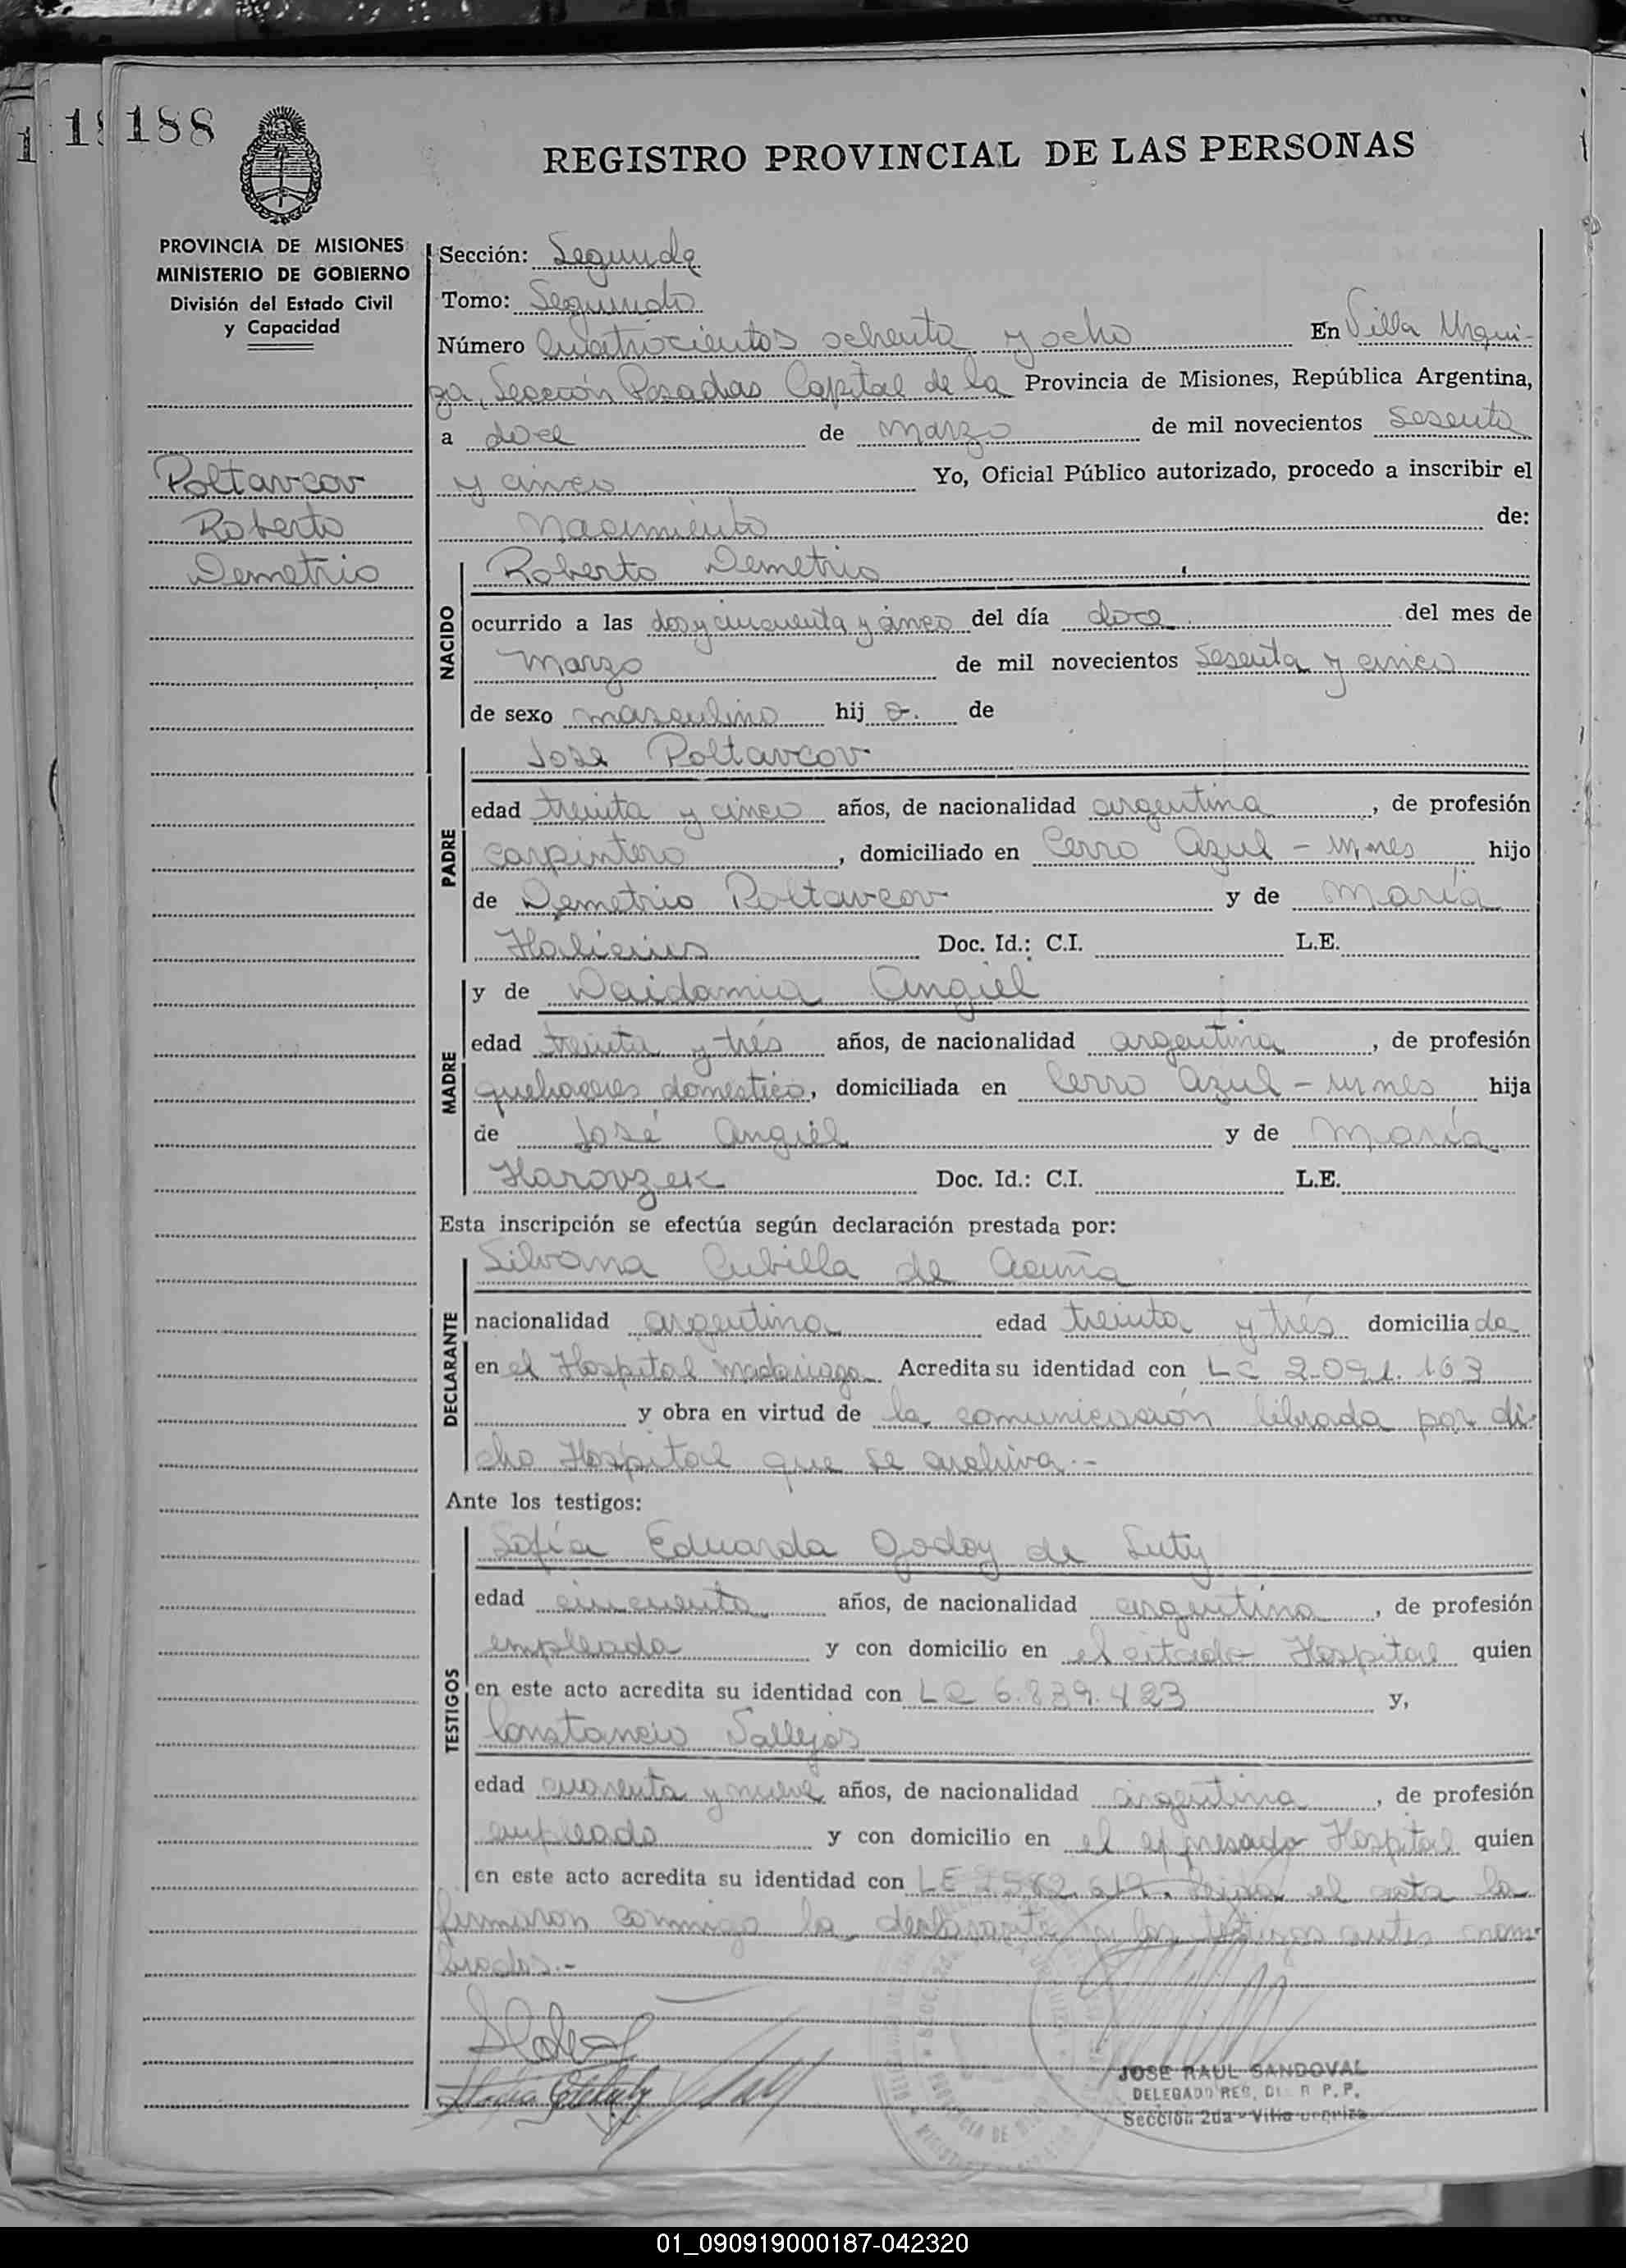 188
REGISTRO PROVINCIAL DE LAS PERSONAS
PROVINCIA DE MISIONES
MINISTERIO DE GOBIERNO
División del Estado Civil
y Capacidad
Poltavcov
Roberto
Demetrio
Sección: Segunda
Tomo: Segundo
Número Cuatrocientos ochenta y ocho En Villa Urqui-
za, Sección Posadas Capital de la Provincia de Misiones, República Argentina,
a doce de marzo de mil novecientos Sesenta
y cinco Yo, Oficial Público autorizado, procedo a inscribir el
Nacimiento de:
NACIDO
Roberto Demetrio
ocurrido a las dos y cincuenta y cinco del día doce del mes de
marzo de mil novecientos Sesenta y cinco
de sexo masculino hij o. de
PADRE
José Poltavcov
edad treinta y cinco años, de nacionalidad argentina, de profesión
carpintero, domiciliado en Cerro Azul - Mnes hijo
de Demetrio Poltavcov y de María
Doc. Id.: C.I. L.E.
MADRE
y de Daidamia Angiel
edad treinta y trés años, de nacionalidad argentina, de profesión
quehaceres domestico, domiciliada en Cerro Azul - Mnes hija
de José Angiel y de María
Harovzek Doc. Id.: C.I. L.E.
Esta inscripción se efectúa según declaración prestada por:
DECLARANTE
Silvana Cubilla de Acuña
nacionalidad argentina edad treinta y trés domicilia da
en el Hospital Madariaga Acredita su identidad con LC 2.091.163
y obra en virtud de la comunicación librada por di-
cho Hospital que se archiva.-
Ante los testigos:
TESTIGOS
Sofía Eduarda Godoy de Luty
edad cincuenta años, de nacionalidad argentina, de profesión
empleada y con domicilio en el citado Hospital quien
en este acto acredita su identidad con LC 6.839.423 y,
Constancio Vallejos
edad cuarenta y nueve años, de nacionalidad argentina, de profesión
empleado y con domicilio en el expresado Hospital quien
en este acto acredita su identidad con LE Leida el acta la
firmaron conmigo la declarante y los testigos antes nom-
brados.-
JOSE RAUL SANDOVAL
DELEGADO REG. DE R P.P.
Sección 2da - Villa Urquiza
01_090919000187-042320